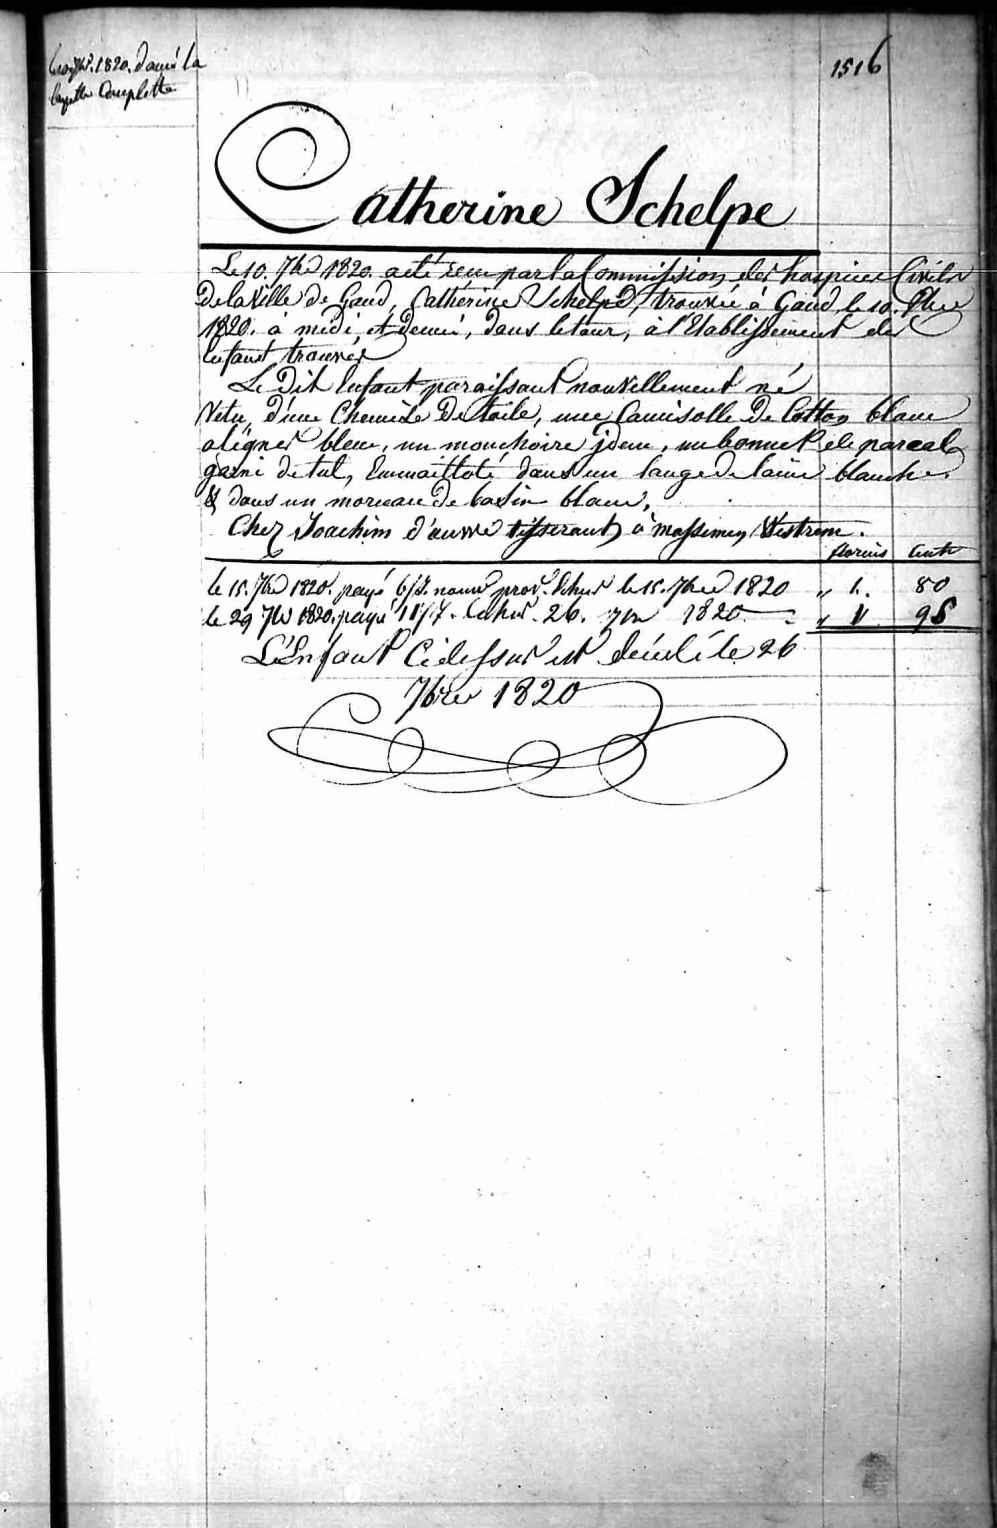 7bre. 1820. donné la
layette Complette
1516
Catherine Schelpe
Le 10. 7bre 1820. a été reçu par la Commission des hospices Civils
de la Ville de Gand, Catherine Schelpe, trouvée à Gand, le 10. 7bre
1820. à midi et demie, dans le tour, à l'Etablissement des
Enfans trouvés
Le dit Enfant paraissant nouvellement né
Vetu d'une Chemise de toile, une Camisolle de Cotton blanc
a lignes bleue, un mouchoire idem, un bonnet de parcal
garni de tul, Emmailloté dans un lange de laine blanche
& dans un morceau de basin blanc,
Chez Joachim d'auwe tisserant, à Massemen Westrem.
florins Cents
le 15. 7bre 1820. payé 6/7. nour. prov. Echus le 15. 7bre 1820 " 1. 80
le 29 7bre 1820. payé 11/7. Echus. 26. 7bre 1820 " 1 98
L'Enfant Cidessus est décédé le 26
7bre 1820